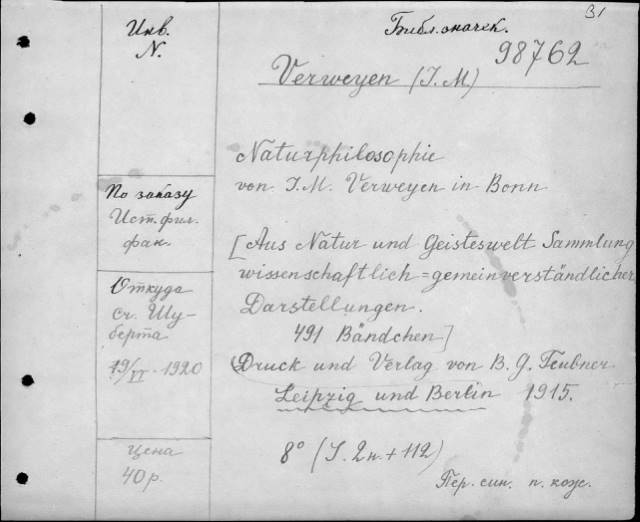 31
Инв.
N.
Библ. значек.
98762
Verweyen (J. M)
Naturphilosophie
von J. M. Verweyen in Bonn
По заказу
Ист. фил.
фак.
[Aus Natur und Geisteswelt Sammlung
wissenschaftlich=gemeinverständlicher
Darstellungen.
491 Bändchen]
Откуда
сч. Шу-
берта
19/VI - 1920
Druck und Verlag von B. G. Teubner
Leipzig und Berlin 1915.
Цена
40 р.
8° (S. 2н. + 112)
Пер. син. п. кож.